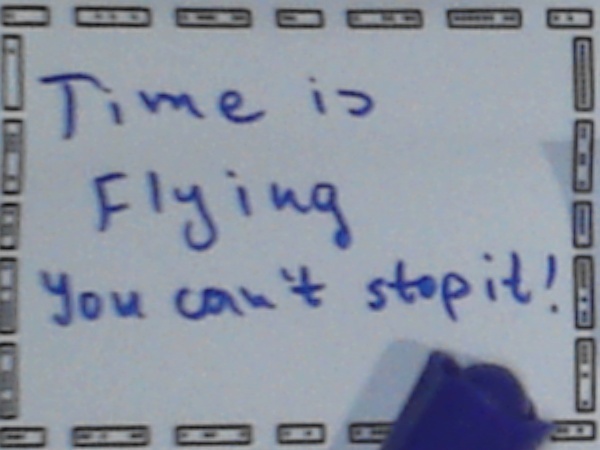 Time is
Flying
you can't stop it!